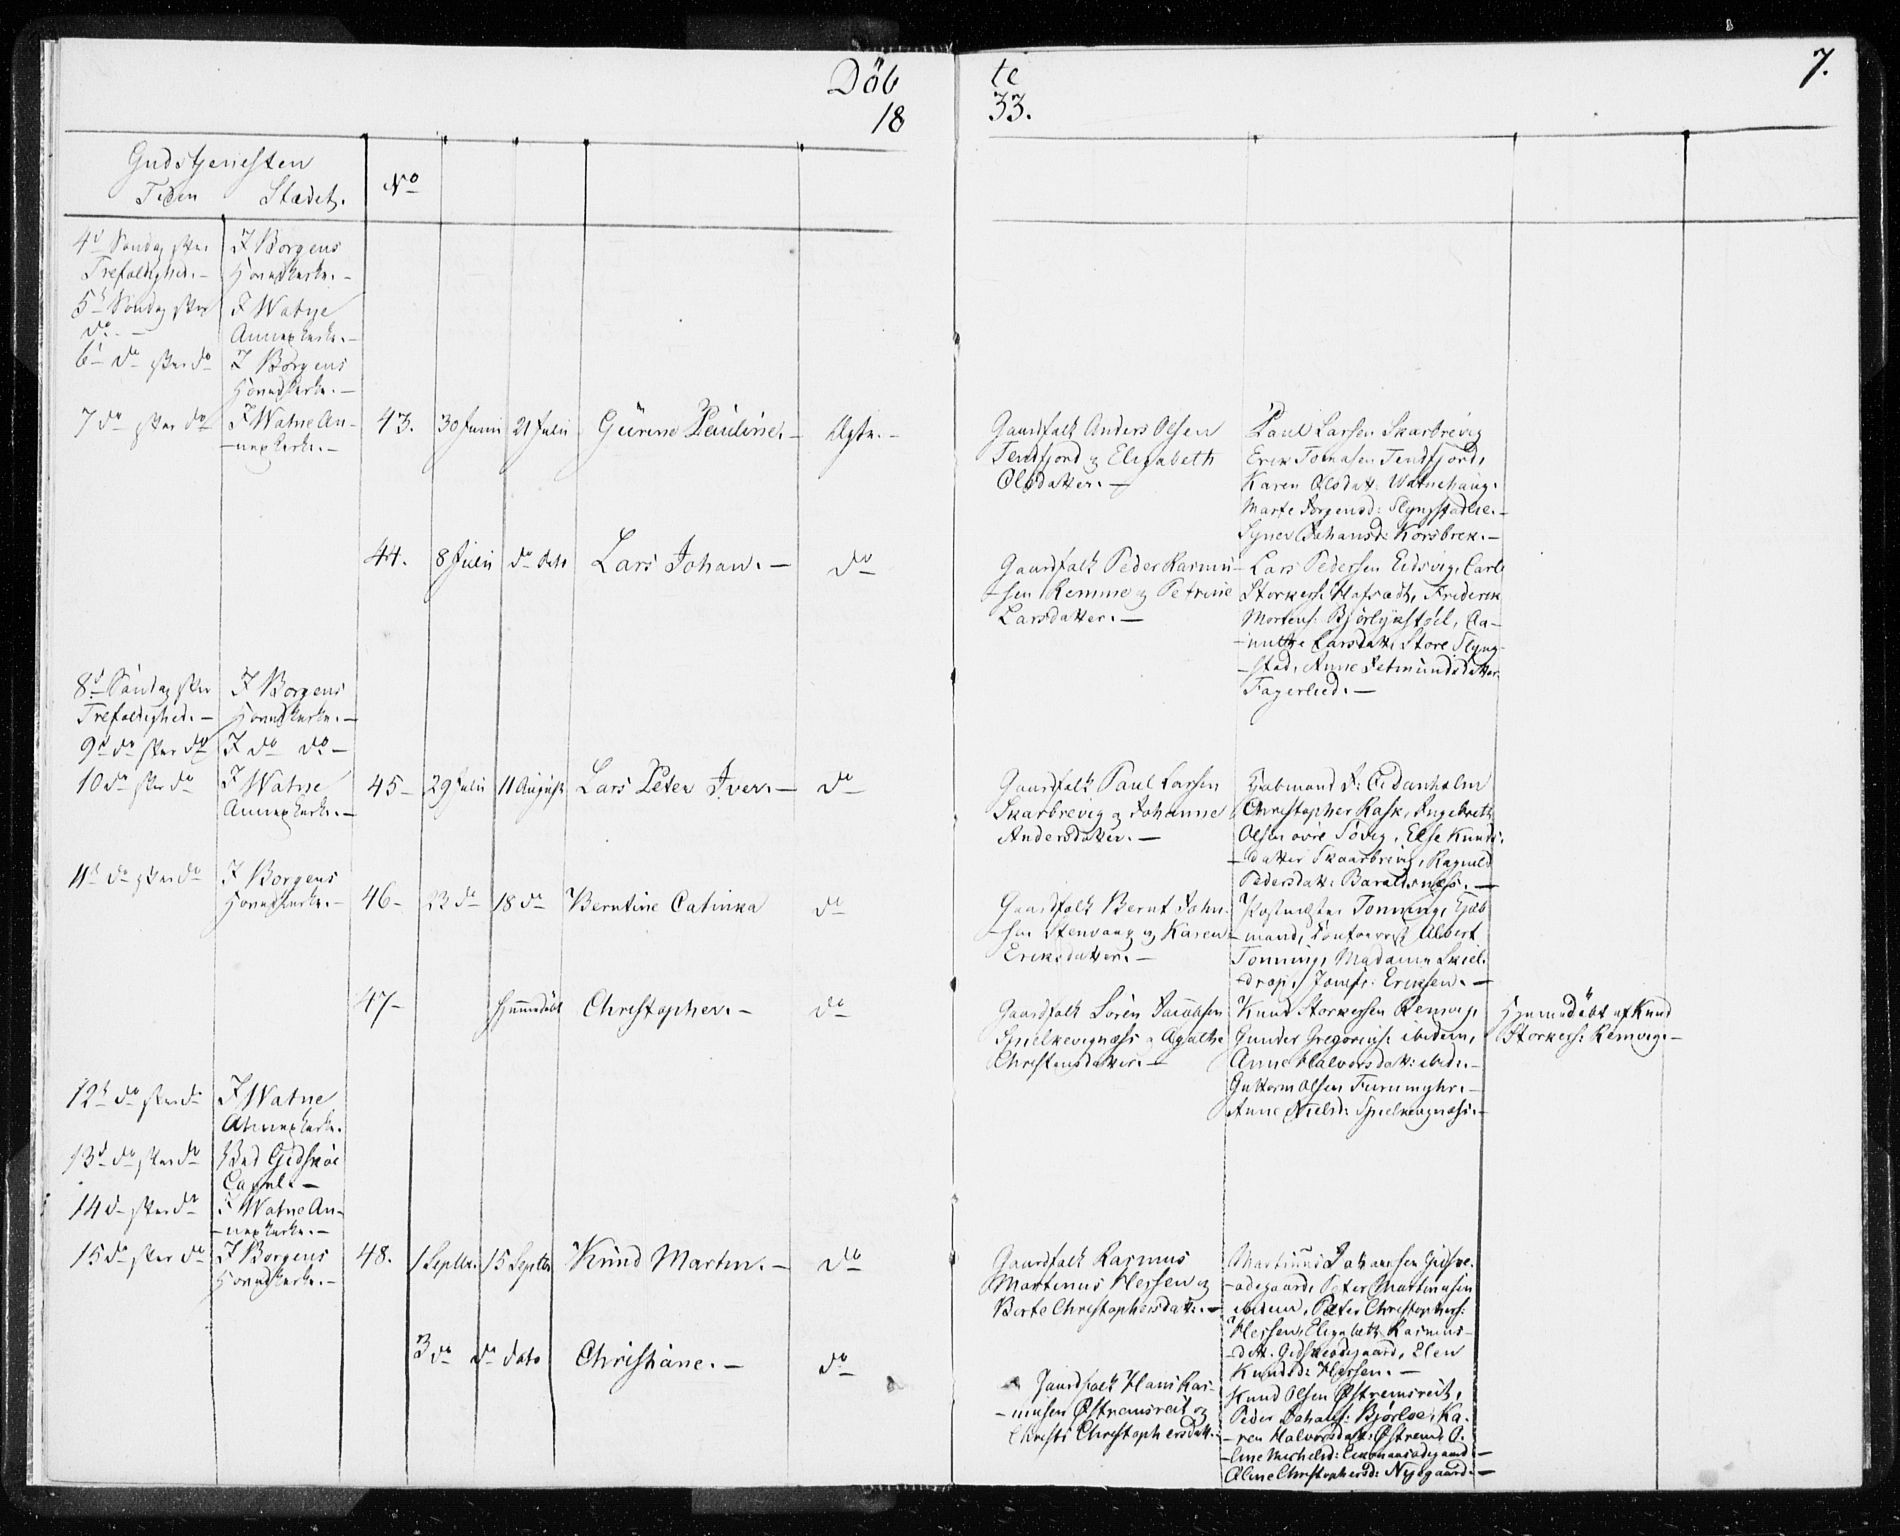 Döb te 7.
18 33.
Gudstjenesten
Tiden Stædet. No
4d Søndag efter I Borgens
Trefoldighed. - Hovedkirke. -
5t Søndag efter I Watne
do - Annexkirke. -
6te do efter do I Borgens
Hovedkirke. -
7 do efter do I Watne An-
-nexkirke. -
43. 30 Junii 21 Julii Gurine Pauline. - Ægte. -
Gaardfolk Anders Olsen
Tendfjord og Elisabeth
Olsdatter. -
Paul Larsen Skarbrevig
Erik Tomasen Tendfjord,
Karen Olsdat: Watnehaug.
Marte Jørgensd: Slyngstadlie. -
Synev Johansd: Korsbrek. -
44. 8 Julii do Dato Lars Johan. - do
Gaardfolk Peder Rasmu-
-sen Remme og Petrine
Larsdatter. -
Lars Pedersen Eidsvig, Carl
Storkers: Hafsædt, Friderik
Mortens: Bjørlykstøel, Aa-
-nuthe Larsdat: Store Slyng-
-stad, Anne Setmundsdatter
Fagerlied. -
8d Søndag efter I Borgens
Trefoldighed. - Hovedkirke. -
9d do efter do I do do -
10 do efter do I Watne
Annexkirke. -
45 - 29 Julii 11 August Lars Peter Iver. - do
Gaardfolk Paul Larsen
Skarbrevig og Johanne
Andersdatter. -
Kjøbmand F: C: Danholm
Christopher Rask, Ingebreth
Olsen øvre Søvig, Else Knuds-
-datter Skaarbrevig, Ragnild
Pedersdat: Baraldsnæs. -
11d do efter do I Borgens
Hovedkirke. -
46 - 23 do 18 do Berntine Catinka do
Gaardfolk Bernt John-
-sen Stenvaag og Karen
Eriksdatter. -
Postmester Tonning, Kjøb-
-mand, Albert
Tonning, Madame Skiel-
-drop, Jomfr: Eriksen. -
47 - Hjemmedöbt Christopher. - do
Gaardfolk Søren Jacobsen
Spielkevignæss og Agathe
Christensdatter. -
Knut Storkersen Remvig,
Gunder Gregorius: ibidem,
Anne Halvorsdat: ibid: -
Guttorm Olsen Furumyhr. -
Anne Nielsd: Spielkevignæss. -
Hjemmedöbt af Knud
Storkers: Remvig. -
12t do efter do I Watne
Annexkirke.
13d do efter do Ved Gidskøe
Capel. -
14 do efter do I Watne An-
-nexkirke. -
15 do efter do I Borgens
Hovedkirke. -
48. 1 Septbr. 15 Septbr Knud Martin. - do
Gaardfolk Rasmus
Martinus Hessen og
Berte Christophersdat: -
Martinus Johansen Gidskø-
-ødegaard, Peter Martinusen
ibidem, Peter Christophers:
Hessen, Elisabeth Rasmus-
-dat: Gidskeødegaard, Elen
Knudsd: Hessen. -
3 do do Dato Christiane. - do
Gaardfolk Hans Ras-
-musen Østremsreit og
Christi Christophersdat:
Knud Olsen Østremsreit,
Peder Johans: Bjørloe, Ka-
-ren Halvorsdat: Østrem, O-
-line Michelsd: -
Oline Christophersd: Nygaard. -